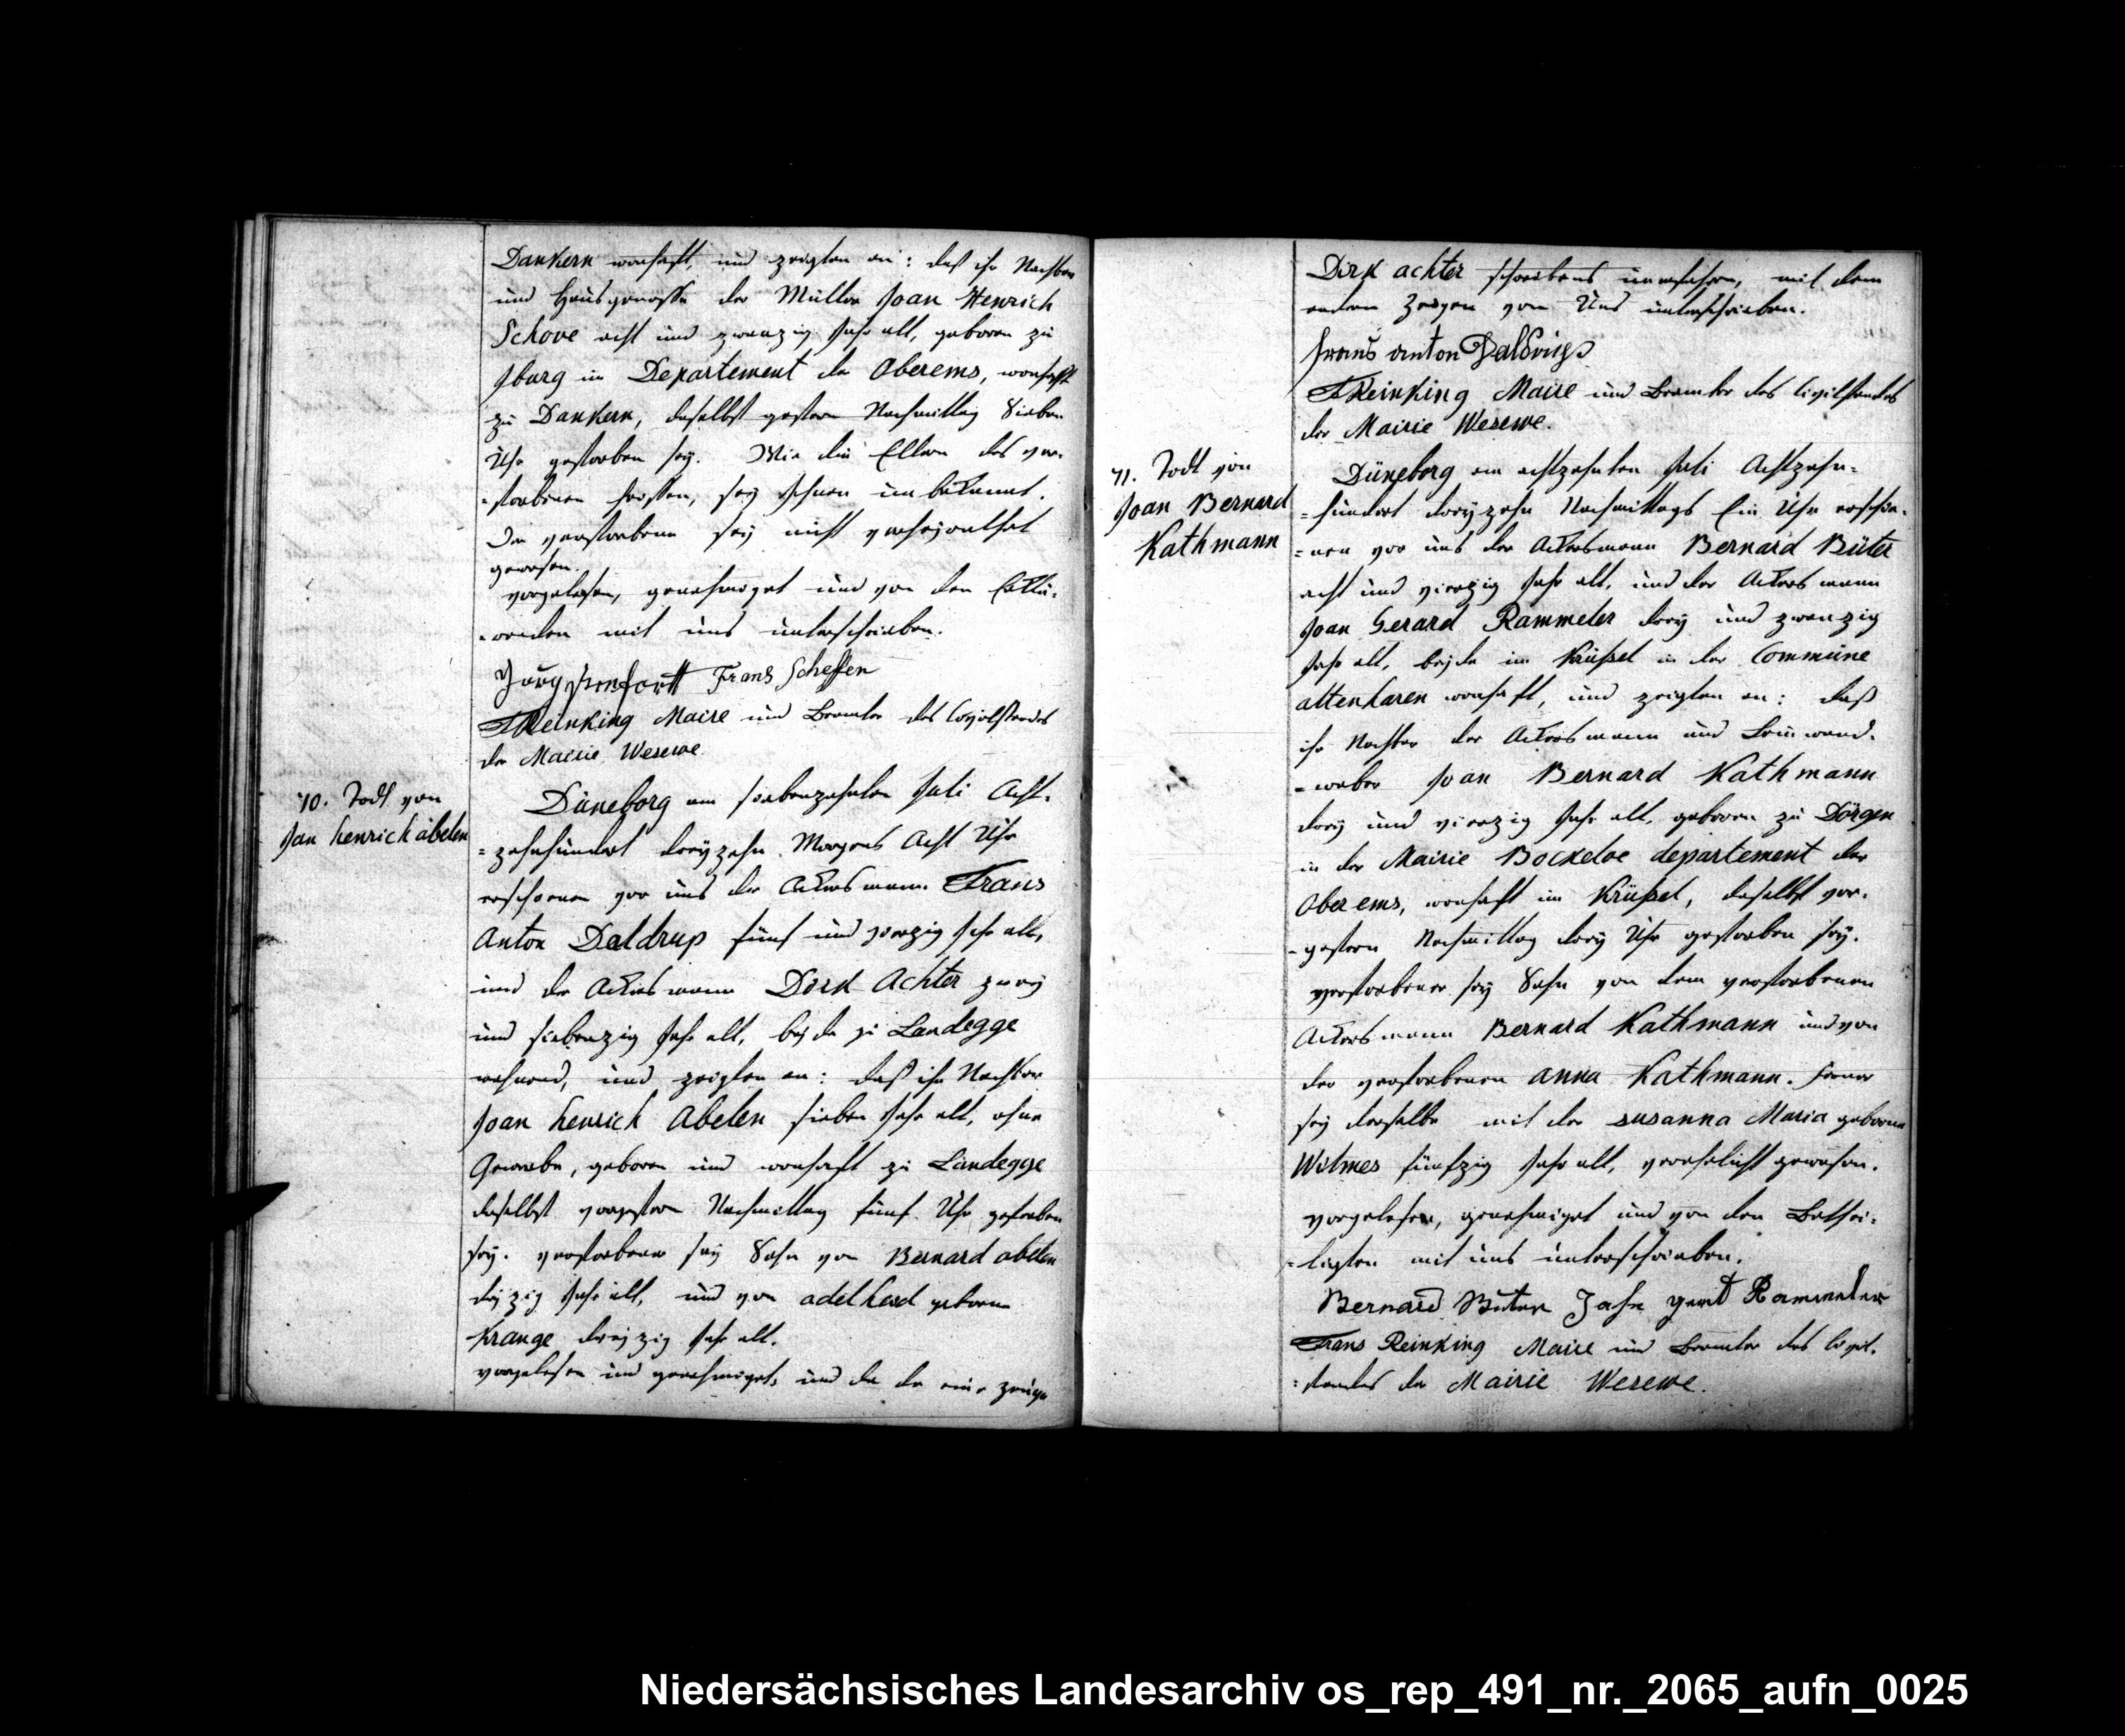 Dankern wonhaft, und zeigten an: daß ihr Nachbar
und Hausgenosse der Müller Joan Henrich
Schove acht und zwanzig Jahr alt, geboren zu
Iburg im Departement der Oberems, wonhaft
zu Dankern, daselbst gestern Nachmittag Sieben
Uhr gestorben sey. Wie die Eltern des ver-
-storbenen heissen, sey Ihnen unbekannt.
Der verstorbene sey nicht verheyrathet
gewesen.
vorgelesen, genehmiget und von den
mit uns unterschrieben.
Frans Scheffen
FReinking Maire und Beamter des Civilstandes
der Mairie Wesewe.
70. Todt von
Jan henrich abelen
Düneborg am siebenzehnten Juli Acht-
=zehnhundert dreyzehn Morgens Acht Uhr
erschienen vor uns der Ackersmann Frans
Anton Daldrup fünf und vierzig Jahr alt,
und der Ackersmann Dirk Achter zwey
und siebenzig Jahr alt, beyde zu Landegge
wohnend, und zeigten an: daß ihr Nachbar
Joan henrich Abelen sieben Jahr alt, ohne
Gewerbe, geboren und wonhaft zu Landegge
daselbst vorgestern Nachmittag fünf Uhr gestorben
sey. verstorbener sey Sohn von Bernard abelen
dreyzig Jahr alt, und von adelheid geborne
Krange dreyzig Jahr alt.
vorgelesen und genehmiget, und da der eine zeuge
Dirk achter schreibens unerfahren, mit dem
andern Zeugen von Uns unterschrieben.
frans anton Daldrup
FReinking Maire und Beamter des Civilstandes
der Mairie Wesewe.
71. Todt von
Joan Bernard
Kathmann
Düneborg am achtzehnten Juli Achtzehn-
=hundert dreyzehn Nachmittags Ein Uhr erschie-
=nen vor uns der Ackersmann Bernard Büter
acht und vierzig Jahr alt, und der Ackersmann
Joan Gerard Rammeler drey und zwanzig
Jahr alt, beyde im Krüssel in der Commüne
altenharen wonhaft, und zeigten an: daß
ihr Nachbar der Ackersmann und Leinwand-
=weber Joan Bernard Kathmann
drey und vierzig Jahr alt, geboren zu Dörgen
in der Mairie Bockeloe departement der
Oberems, wonhaft im Krüssel, daselbst vor-
-gestern Nachmittag drey Uhr gestorben sey.
verstorbener sey Sohn von dem verstorbenen
Ackersmann Bernard Kathmann und von
der verstorbenen anna Kathmann. ferner
sey derselbe mit der susanna Maria geborne
Wilmes fünfzig Jahr alt, verehelicht gewesen.
vorgelesen, genehmiget und von den Bethei-
=ligten mit uns unterschrieben.
Bernard Büter Jahn gerd Rammeler
Frans Reinking Maire und Beamter des Civil-
=standes der Mairie Wesewe.
Niedersächsisches Landesarchiv os_rep_491_nr._2065_aufn_0025